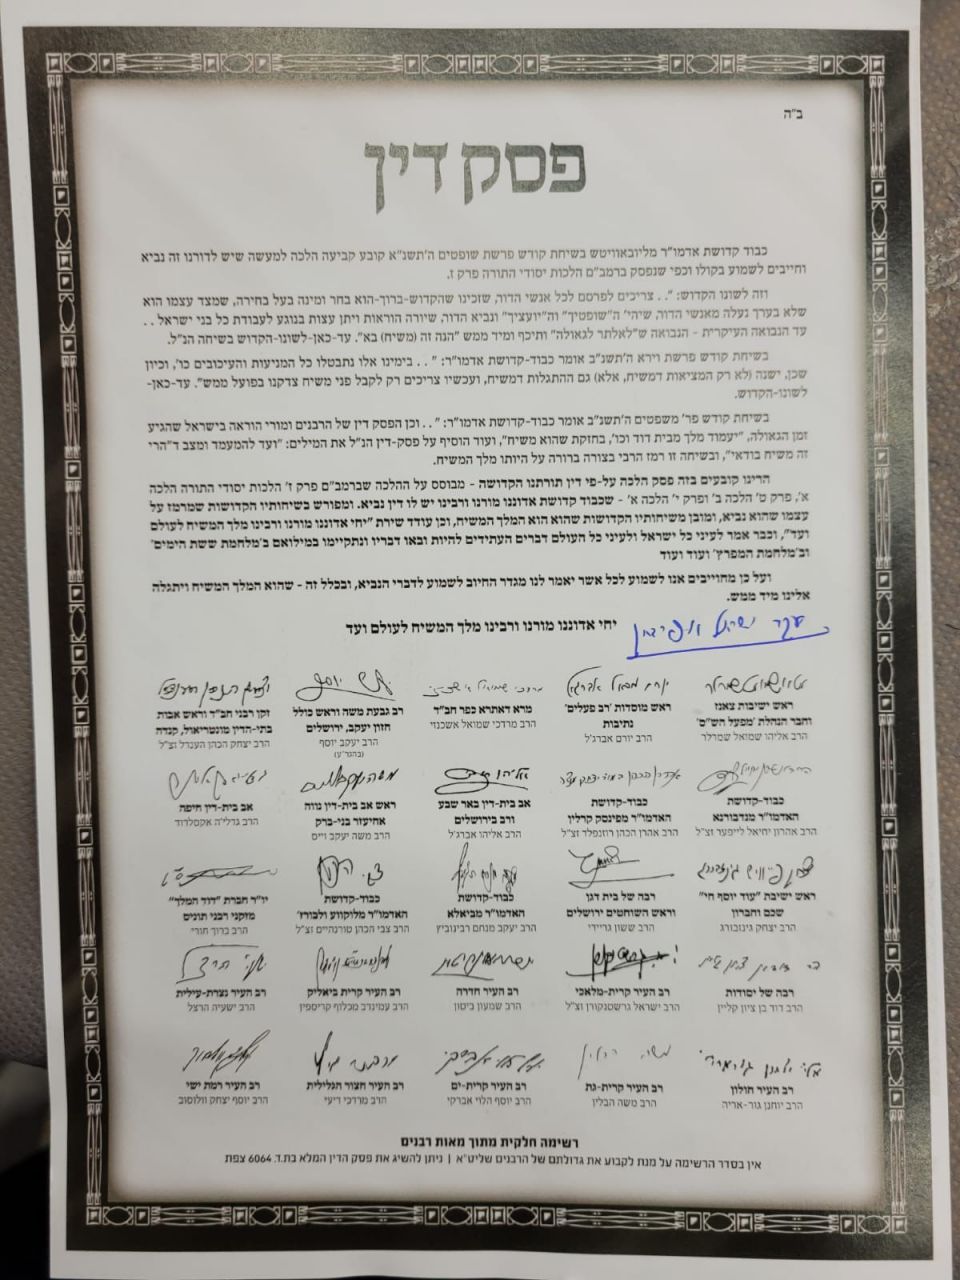 ב"ה
פסק דין
כבוד קדושת אדמו"ר מליובאוויטש בשיחת קודש פרשת שופטים ה'תשנ"א קובע קביעה הלכה למעשה שיש לדורנו זה נביא
וחייבים לשמוע בקולו וכפי שנפסק ברמב"ם הלכות יסודי התורה פרק ז.
וזה לשונו הקדוש: ". . צריכים לפרסם לכל אנשי הדור, שזכינו שהקדוש-ברוך-הוא בחר ומינה בעל בחירה, שמצד עצמו הוא
שלא בערך נעלה מאנשי הדור, שיהי' ה"שופטיך" וה"יועציך" ונביא הדור, שיורה הוראות ויתן עצות בנוגע לעבודת כל בני ישראל . .
עד הנבואה העיקרית - הנבואה ש"לאלתר לגאולה" ותיכף ומיד ממש "הנה זה (משיח) בא". עד-כאן-לשונו-הקדוש בשיחה הנ"ל.
בשיחת קודש פרשת וירא ה'תשנ"ב אומר כבוד-קדושת אדמו"ר: ". . בימינו אלו נתבטלו כל המניעות והעיכובים כו', וכיון
שכן, ישנה (לא רק המציאות דמשיח, אלא) גם ההתגלות דמשיח, ועכשיו צריכים רק לקבל פני משיח צדקנו בפועל ממש". עד-כאן-
לשונו-הקדוש.
בשיחת קודש פר' משפטים ה'תשנ"ב אומר כבוד-קדושת אדמו"ר: ". . וכן הפסק דין של הרבנים ומורי הוראה בישראל שהגיע
זמן הגאולה, "יעמוד מלך מבית דוד וכו', בחזקת שהוא משיח", ועוד הוסיף על פסק-דין הנ"ל את המילים: "ועד להמעמד ומצב ד"הרי
זה משיח בודאי", ובשיחה זו רמז הרבי בצורה ברורה על היותו מלך המשיח.
הרינו קובעים בזה פסק הלכה על-פי דין תורתנו הקדושה - מבוסס על ההלכה שברמב"ם פרק ז' הלכות יסודי התורה הלכה
א', פרק ט' הלכה ב' ופרק י' הלכה א' - שכבוד קדושת אדוננו מורנו ורבינו יש לו דין נביא. ומפורש בשיחותיו הקדושות שמרמז על
עצמו שהוא נביא, ומובן משיחותיו הקדושות שהוא הוא המלך המשיח, וכן עודד שירת "יחי אדוננו מורנו ורבינו מלך המשיח לעולם
ועד", וכבר אמר לעיני כל ישראל ולעיני כל העולם דברים העתידים להיות ובאו דבריו ונתקיימו במילואם ב'מלחמת ששת הימים'
וב'מלחמת המפרץ' ועוד ועוד
ועל כן מחוייבים אנו לשמוע לכל אשר יאמר לנו מגדר החיוב לשמוע לדברי הנביא, ובכלל זה - שהוא המלך המשיח ויתגלה
אלינו מיד ממש.
יחי אדוננו מורנו ורבינו מלך המשיח לעולם ועד
ראש ישיבות צאנז
וחבר הנהלת "מפעל הש"ס"
הרב אליהו שמואל שמרלר
ראש מוסדות 'רב פעלים'
נתיבות
הרב יורם אברג'ל
מרא דאתרא כפר חב"ד
הרב מרדכי שמואל אשכנזי
רב גבעת משה וראש כולל
חזון יעקב, ירושלים
הרב יעקב יוסף
(בהגר"ע)
זקן רבני חב"ד וראש אבות
בתי-הדין מונטריאול, קנדה
הרב יצחק הכהן הענדל זצ"ל
כבוד-קדושת
האדמו"ר מנדבורנא
הרב אהרון יחיאל לייפער זצ"ל
כבוד-קדושת
האדמו"ר מפינסק קרלין
הרב אהרן הכהן רוזנפלד זצ"ל
אב בית-דין באר שבע
ורב בירושלים
הרב אליהו אברג'ל
ראש אב בית-דין נווה
אחיעזר בני-ברק
הרב משה יעקב וייס
אב בית-דין חיפה
הרב גדלי'ה אקסלרוד
ראש ישיבת "עוד יוסף חי"
שכם וחברון
הרב יצחק גינזבורג
רבה של בית דגן
וראש השוחטים ירושלים
הרב ששון גריידי
כבוד-קדושת
האדמו"ר מביאלא
הרב יעקב מנחם רבינוביץ
כבוד-קדושת
האדמו"ר מלוקווע ולבורז'
הרב צבי הכהן טורנהיים זצ"ל
יו"ר חברת "דוד המלך"
מזקני רבני תוניס
הרב ברוך חורי
רבה של יסודות
הרב דוד בן ציון קליין
רב העיר קרית-מלאכי
הרב ישראל גרשטנקורן זצ"ל
רב העיר חדרה
הרב שמעון ביטון
רב העיר קרית ביאליק
הרב עמינדב מכלוף קריספין
רב העיר נצרת-עילית
הרב ישעיה הרצל
רב העיר חולון
הרב יוחנן גור-אריה
רב העיר קרית-גת
הרב משה הבלין
רב העיר קרית-ים
הרב יוסף הלוי אברקי
רב העיר חצור הגלילית
הרב מרדכי דיעי
רב העיר רמת ישי
הרב יוסף יצחק וולוסוב
רשימה חלקית מתוך מאות רבנים
אין בסדר הרשימה על מנת לקבוע את גדולתם של הרבנים שליט"א | ניתן להשיג את פסק הדין המלא בת.ד. 6064 צפת